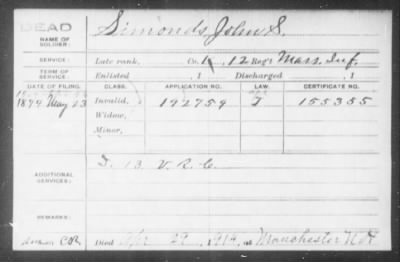 DEAD
NAME OF SOLDIER: Simonds, John S.
SERVICE: Late rank, Co. K, 12 Reg't Mass. Inf.
TERM OF SERVICE: Enlisted , 1 Discharged , 1
DATE OF FILING. CLASS. APPLICATION NO. LAW. CERTIFICATE NO.
1879 May 23 Invalid, 192759 155355
Widow,
Minor,
ADDITIONAL SERVICES: D. 13 V. R. C.
REMARKS:
C.R. Died Apr 29, 1914, at Manchester N.H.